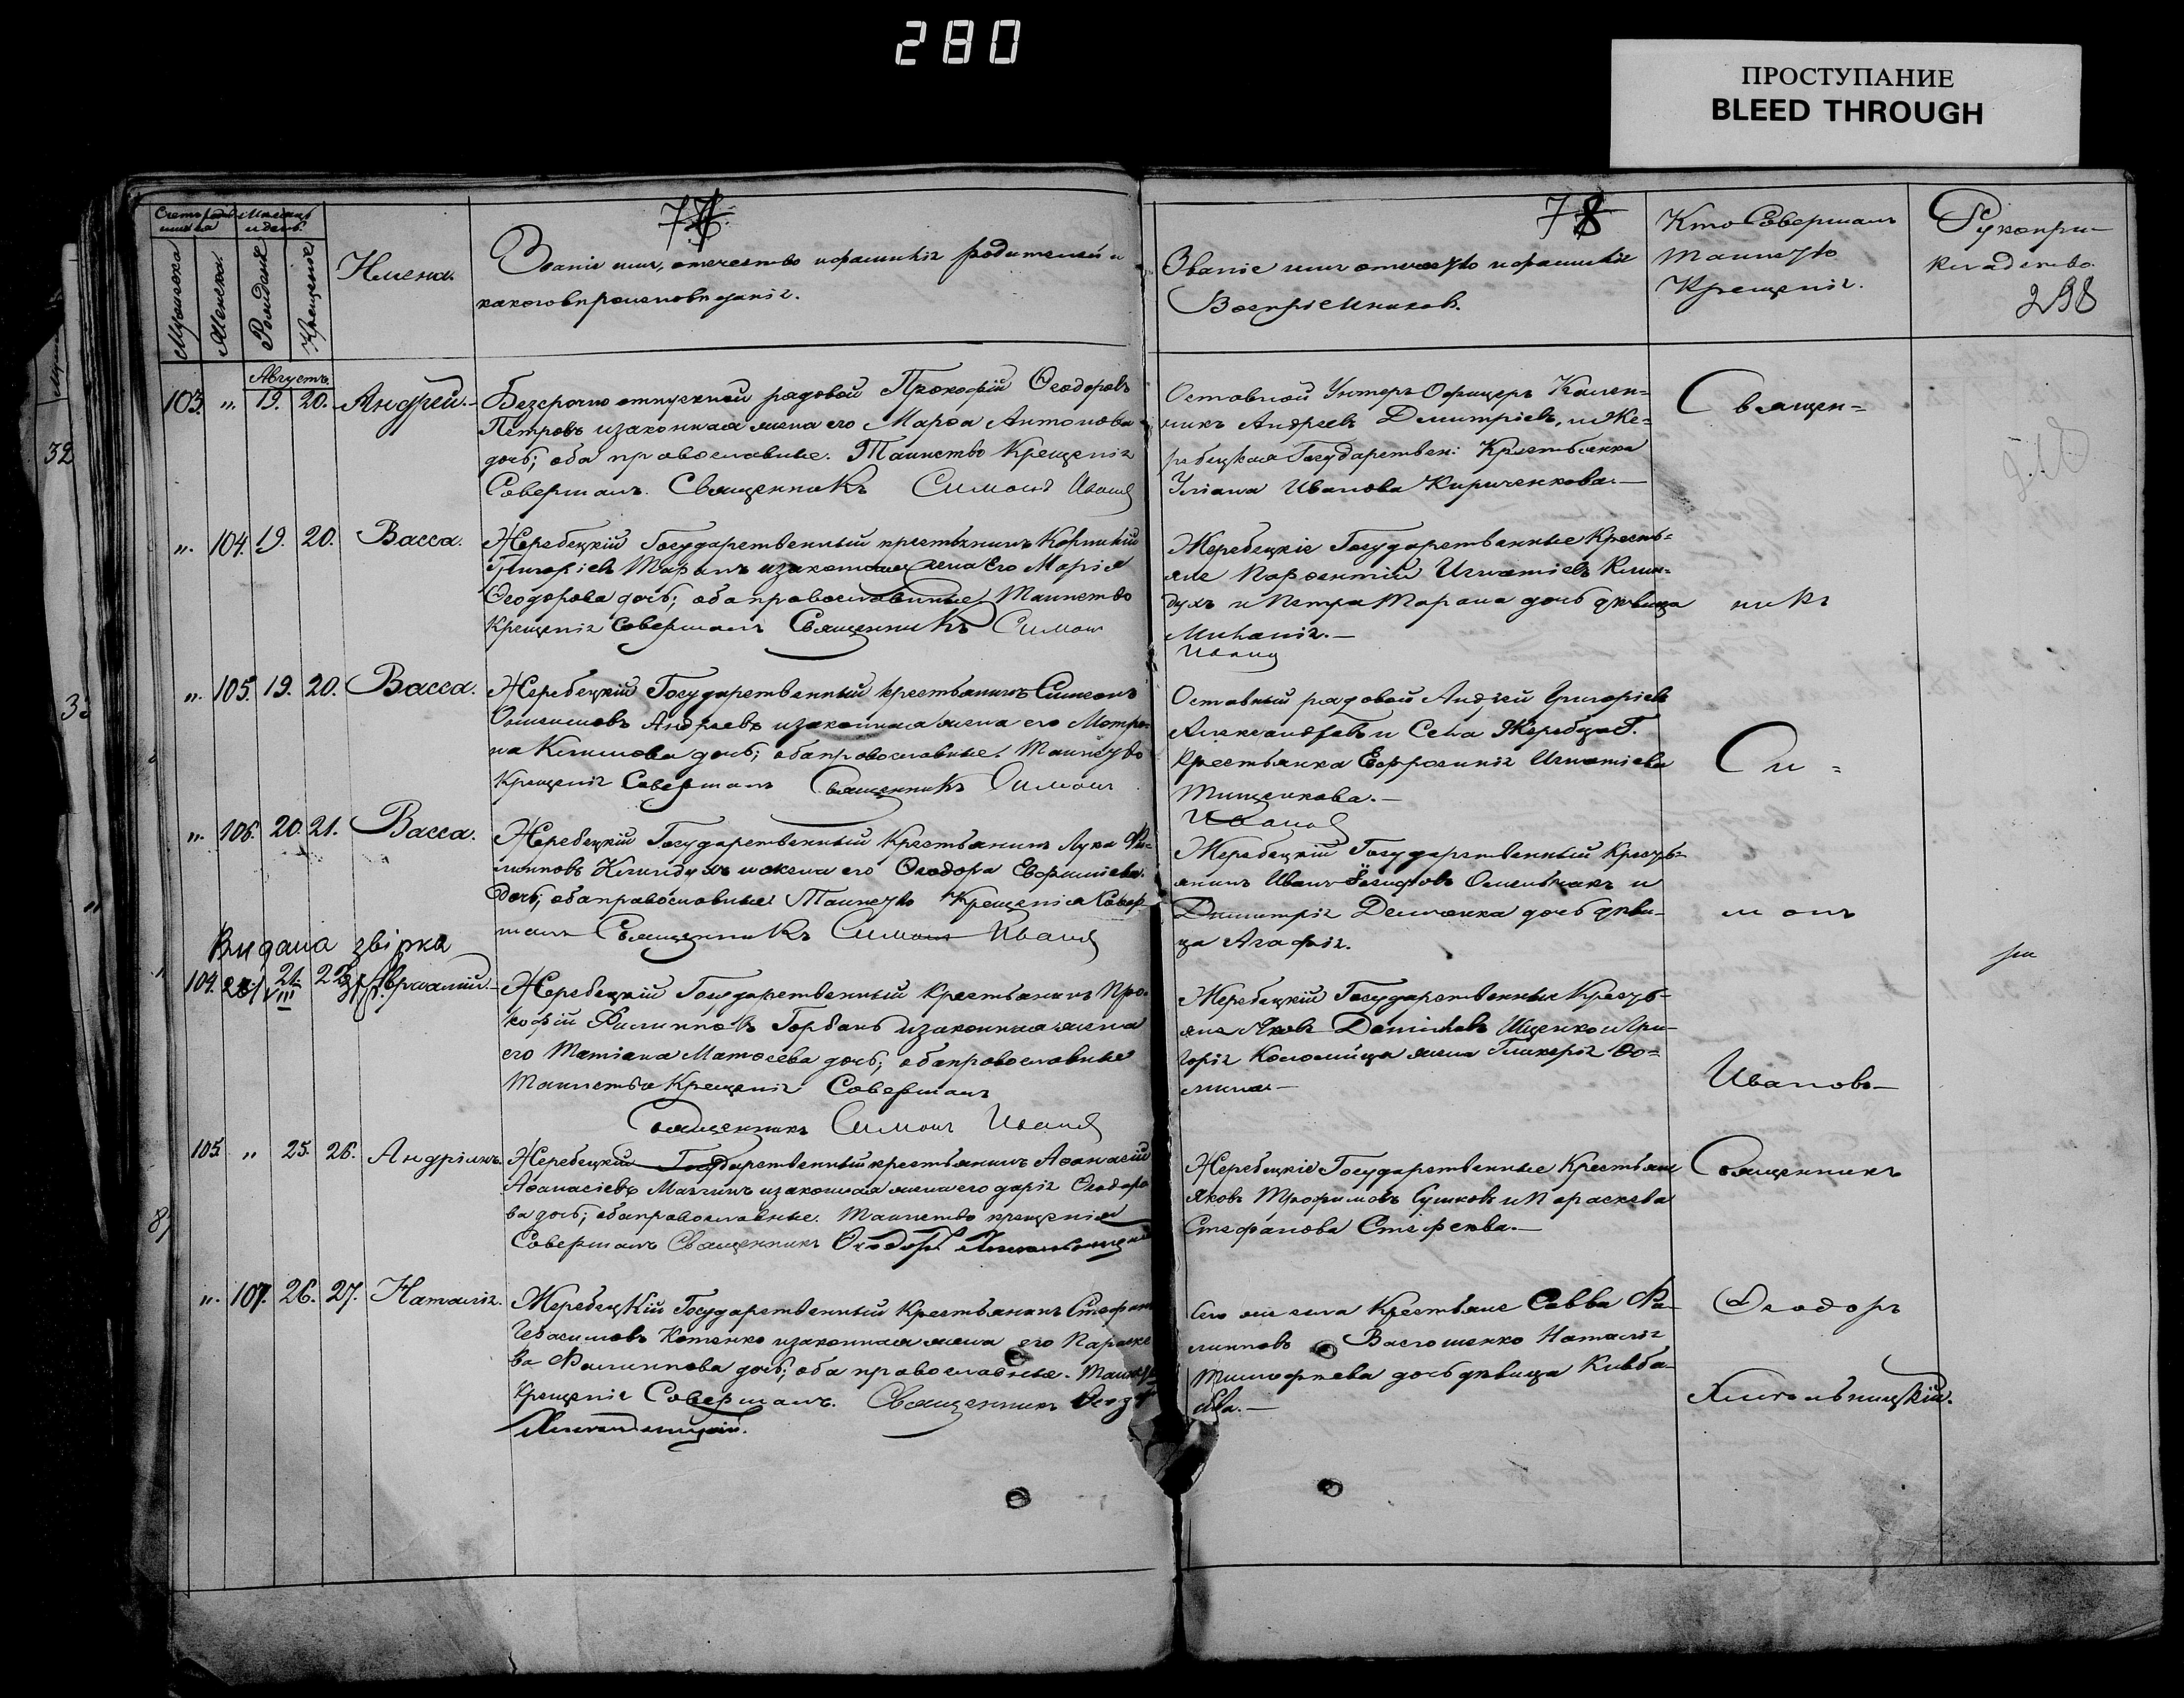 280
ПРОСТУПАНИЕ
BLEED THROUGH
Счетъ родившихся
Мѣсяцъ и день.
Мужеска
Женска.
Рожденіе
Крещеніе
Имена.
Званіе имя, отечество и фамилія родителей и
какого вѣроисповѣданія.
78
Званіе имя отечество и фамилія
Воспріемниковъ.
Кто Совершалъ
Таинство
Крещенія.
Рукопри-
кладство.
298
Августъ.
103. „ 19. 20. Андрей.
Безсрочно отпускной рядовой Прокофій Ѳеодоровъ
Петровъ изаконная жена его Марѳа Антонова
дочь; оба православные. Таинство Крещенія
Совершалъ. Священникъ Симонъ Ивановъ
Отставной Унтеръ Офицеръ
Андреевъ Димитріевъ, и Же=
ребецкая Государствен: Крестьянка
Уліана Иванова Кириченкова.—
Священ=
„ 104. 19. 20. Васса.
Жеребецкій Государственный крестьянинъ Корнилій
Григоріевъ Таранъ изаконная жена Его Марія
Ѳеодорова дочь; оба православные, Таинство
Крещенія Совершалъ Священникъ Симонъ
Жеребецкіе Государственные Кресть=
яне Парфентій Игнатіевъ Клин=
духъ и Петра Тарана дочь дѣвица
Миланія.—
Ивановъ
никъ
„ 105. 19. 20. Васса.
Жеребецкій Государственный крестьянинъ Симеонъ
Онисимовъ Андреевъ изаконная жена его Матро=
на Климова дочь; оба православные. Таинство
Крещенія Совершалъ Священникъ Симонъ
Отставный рядовой Андрей Григоріевъ
Александровъ и Села Жеребца Г.
Крестьянка Евфросинія Игнатіева
Тищенкова.—
Ивановъ
Си=
„ 106. 20. 21. Васса.
Жеребецкій Государственный Крестьянинъ Лука Фи=
липповъ Клиндухъ и жена его Ѳеодора Евфиміева
дочь; оба православные: Таинство Крещенія Совер
шалъ Священникъ Симонъ Ивановъ
Жеребецкій Государственный Кресть=
янинъ Иванъ Омельчакъ и
Димитрія Демченка дочь дѣви=
ца Агафія.
монъ
Видана звірка
104. 21. 22.
Жеребецкій Государственный Крестьянинъ Про=
кофій Филипповъ Горбань изаконная жена
его Татіана Матѳеева дочь; оба православные
Таинство Крещенія Совершалъ
Священникъ Симонъ Ивановъ
Жеребецкій Государственные Кресть=
яне Яковъ Даниловъ Ищенко и Гри=
горія Коломійца жена Гликерія Ѳо=
мина—
Ивановъ—
105 „ 25. 26. Андріанъ.
Жеребецкій Государственный крестьянинъ Аѳанасій
Аѳанасіевъ изаконная жена его Дарія Ѳеодоро
ва дочь; оба православные. Таинство крещенія
Совершалъ Священникъ Ѳеодоръ
Жеребецкіе Государственные Крестьяне
Яковъ Трофимовъ Сушковъ и Параскева
Стефанова
Священникъ
„ 107. 26. 27. Наталія.
Жеребецкій Государственный Крестьянинъ Стефанъ
Герасимовъ Котенко изаконная жена его Параске
ва Филиппова дочь; оба православные. Таинство
Крещенія Совершалъ. Священникъ
Сего же села Крестьяне Савва Фи=
липповъ Наталія
Тимофеева дочь дѣвица
Ѳеодоръ